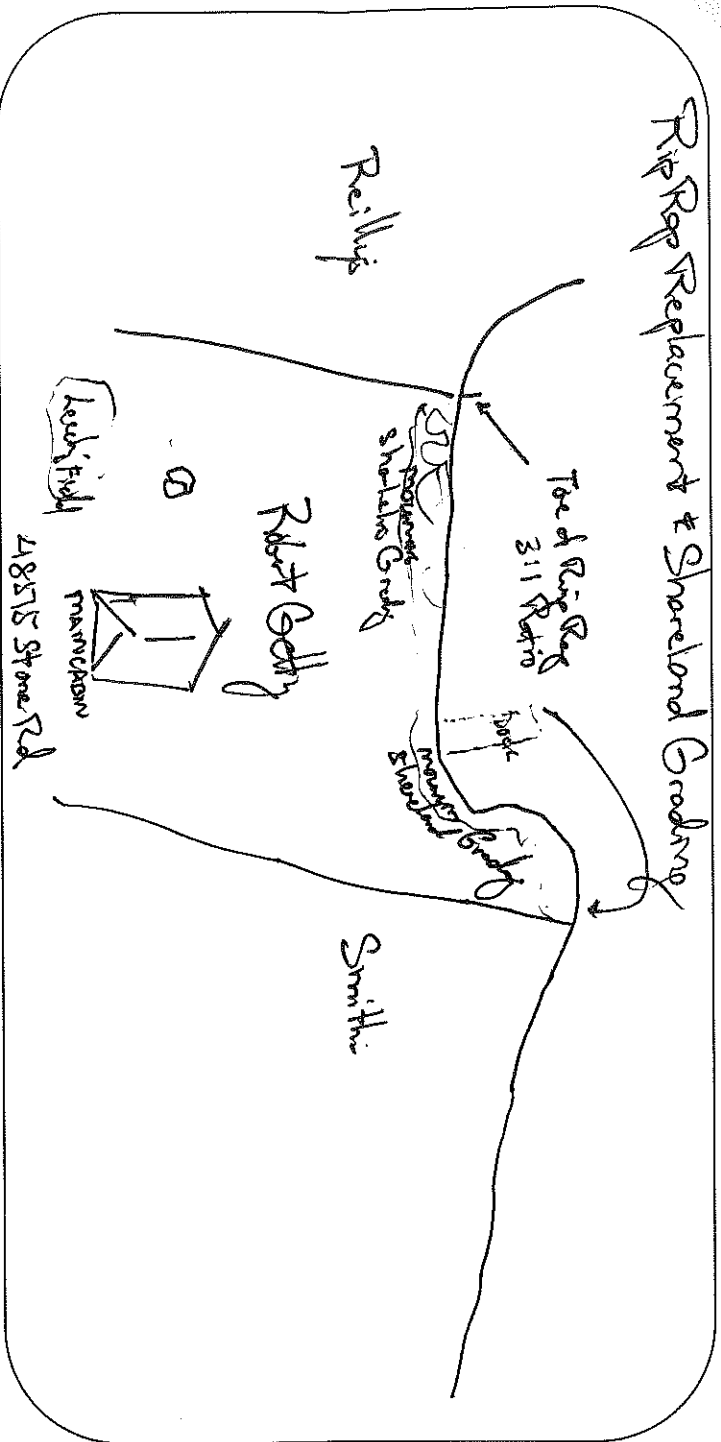 Rip Rap Replacement & Shoreland Grading
Toe of Rip Rap
3:1 Ratio
Dock
Reilly's
Shoreland Grading
Shoreland Grading
Robert Getty
Smith
Leech Field
MAIN CABIN
48575 Stone Rd